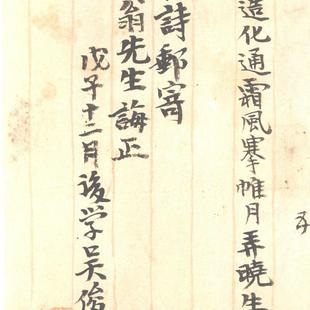 造化通霜風搴帷月弄曉生
詩郵寄
翁先生誨正
戊子十二月後学吳俊